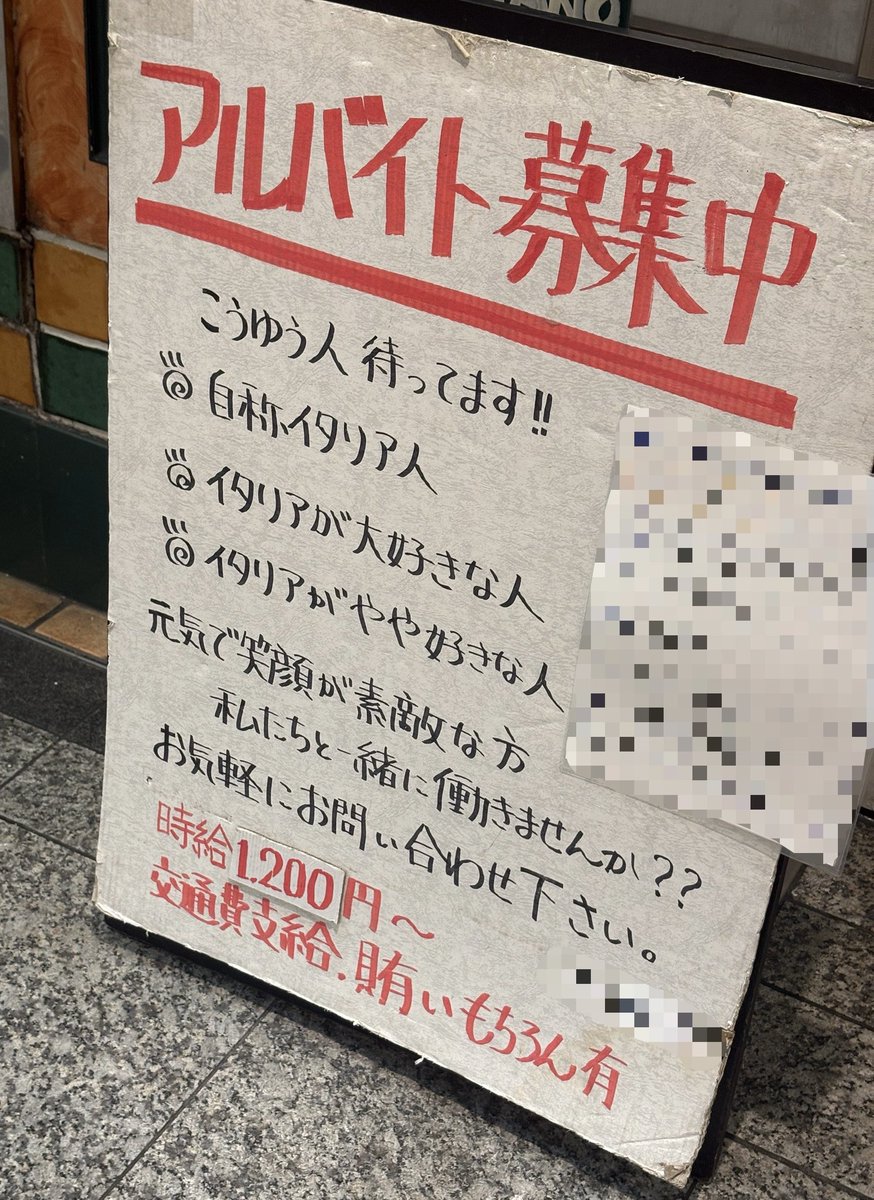 アルバイト募集中
こうゆう人待ってます!!
自称イタリア人
イタリアが大好きな人
イタリアがやや好きな人
元気で笑顔が素敵な方
私たちと一緒に働きませんか??
お気軽にお問い合わせ下さい。
時給1.200円～
交通費支給.賄いもちろん有